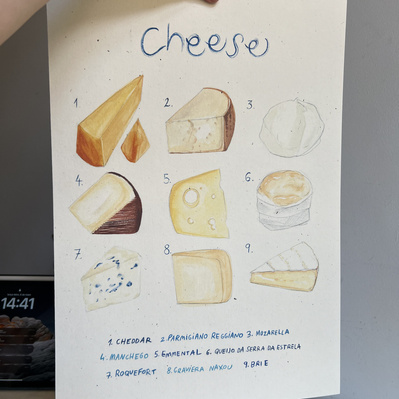 Cheese
1
2.
3.
4.
5.
6.
7.
8.
9.
1. CHEDDAR 2. PARMIGIANO REGGIANO 3. MOZARELLA
4. MANCHEGO 5. EMMENTAL 6. QUEIJO DA SERRA DA ESTRELA
7. ROQUEFORT 8. GRAVIERA NAXOU 9. BRIE
14:41